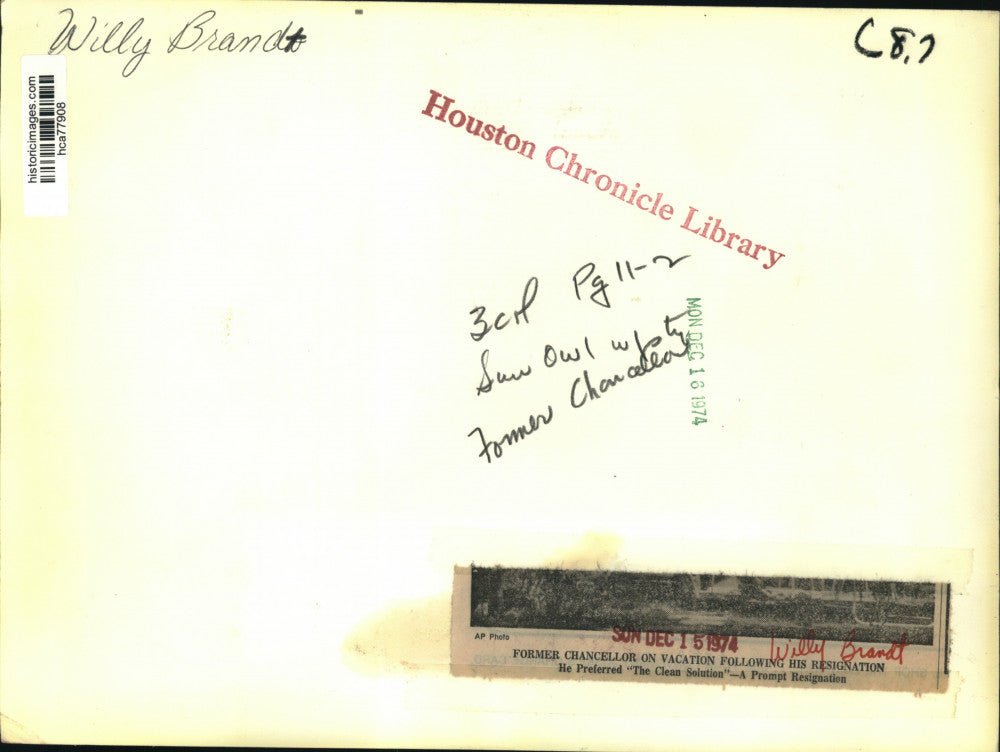 Willy Brandt
C 8.7
historicimages.com
hca77908
Houston Chronicle Library
3 col Pg 11-2
Sun Owl w/
Former Chancellor
MON DEC 16 1974
AP Photo
SUN DEC 15 1974
Willy Brandt
FORMER CHANCELLOR ON VACATION FOLLOWING HIS RESIGNATION
He Preferred "The Clean Solution"—A Prompt Resignation